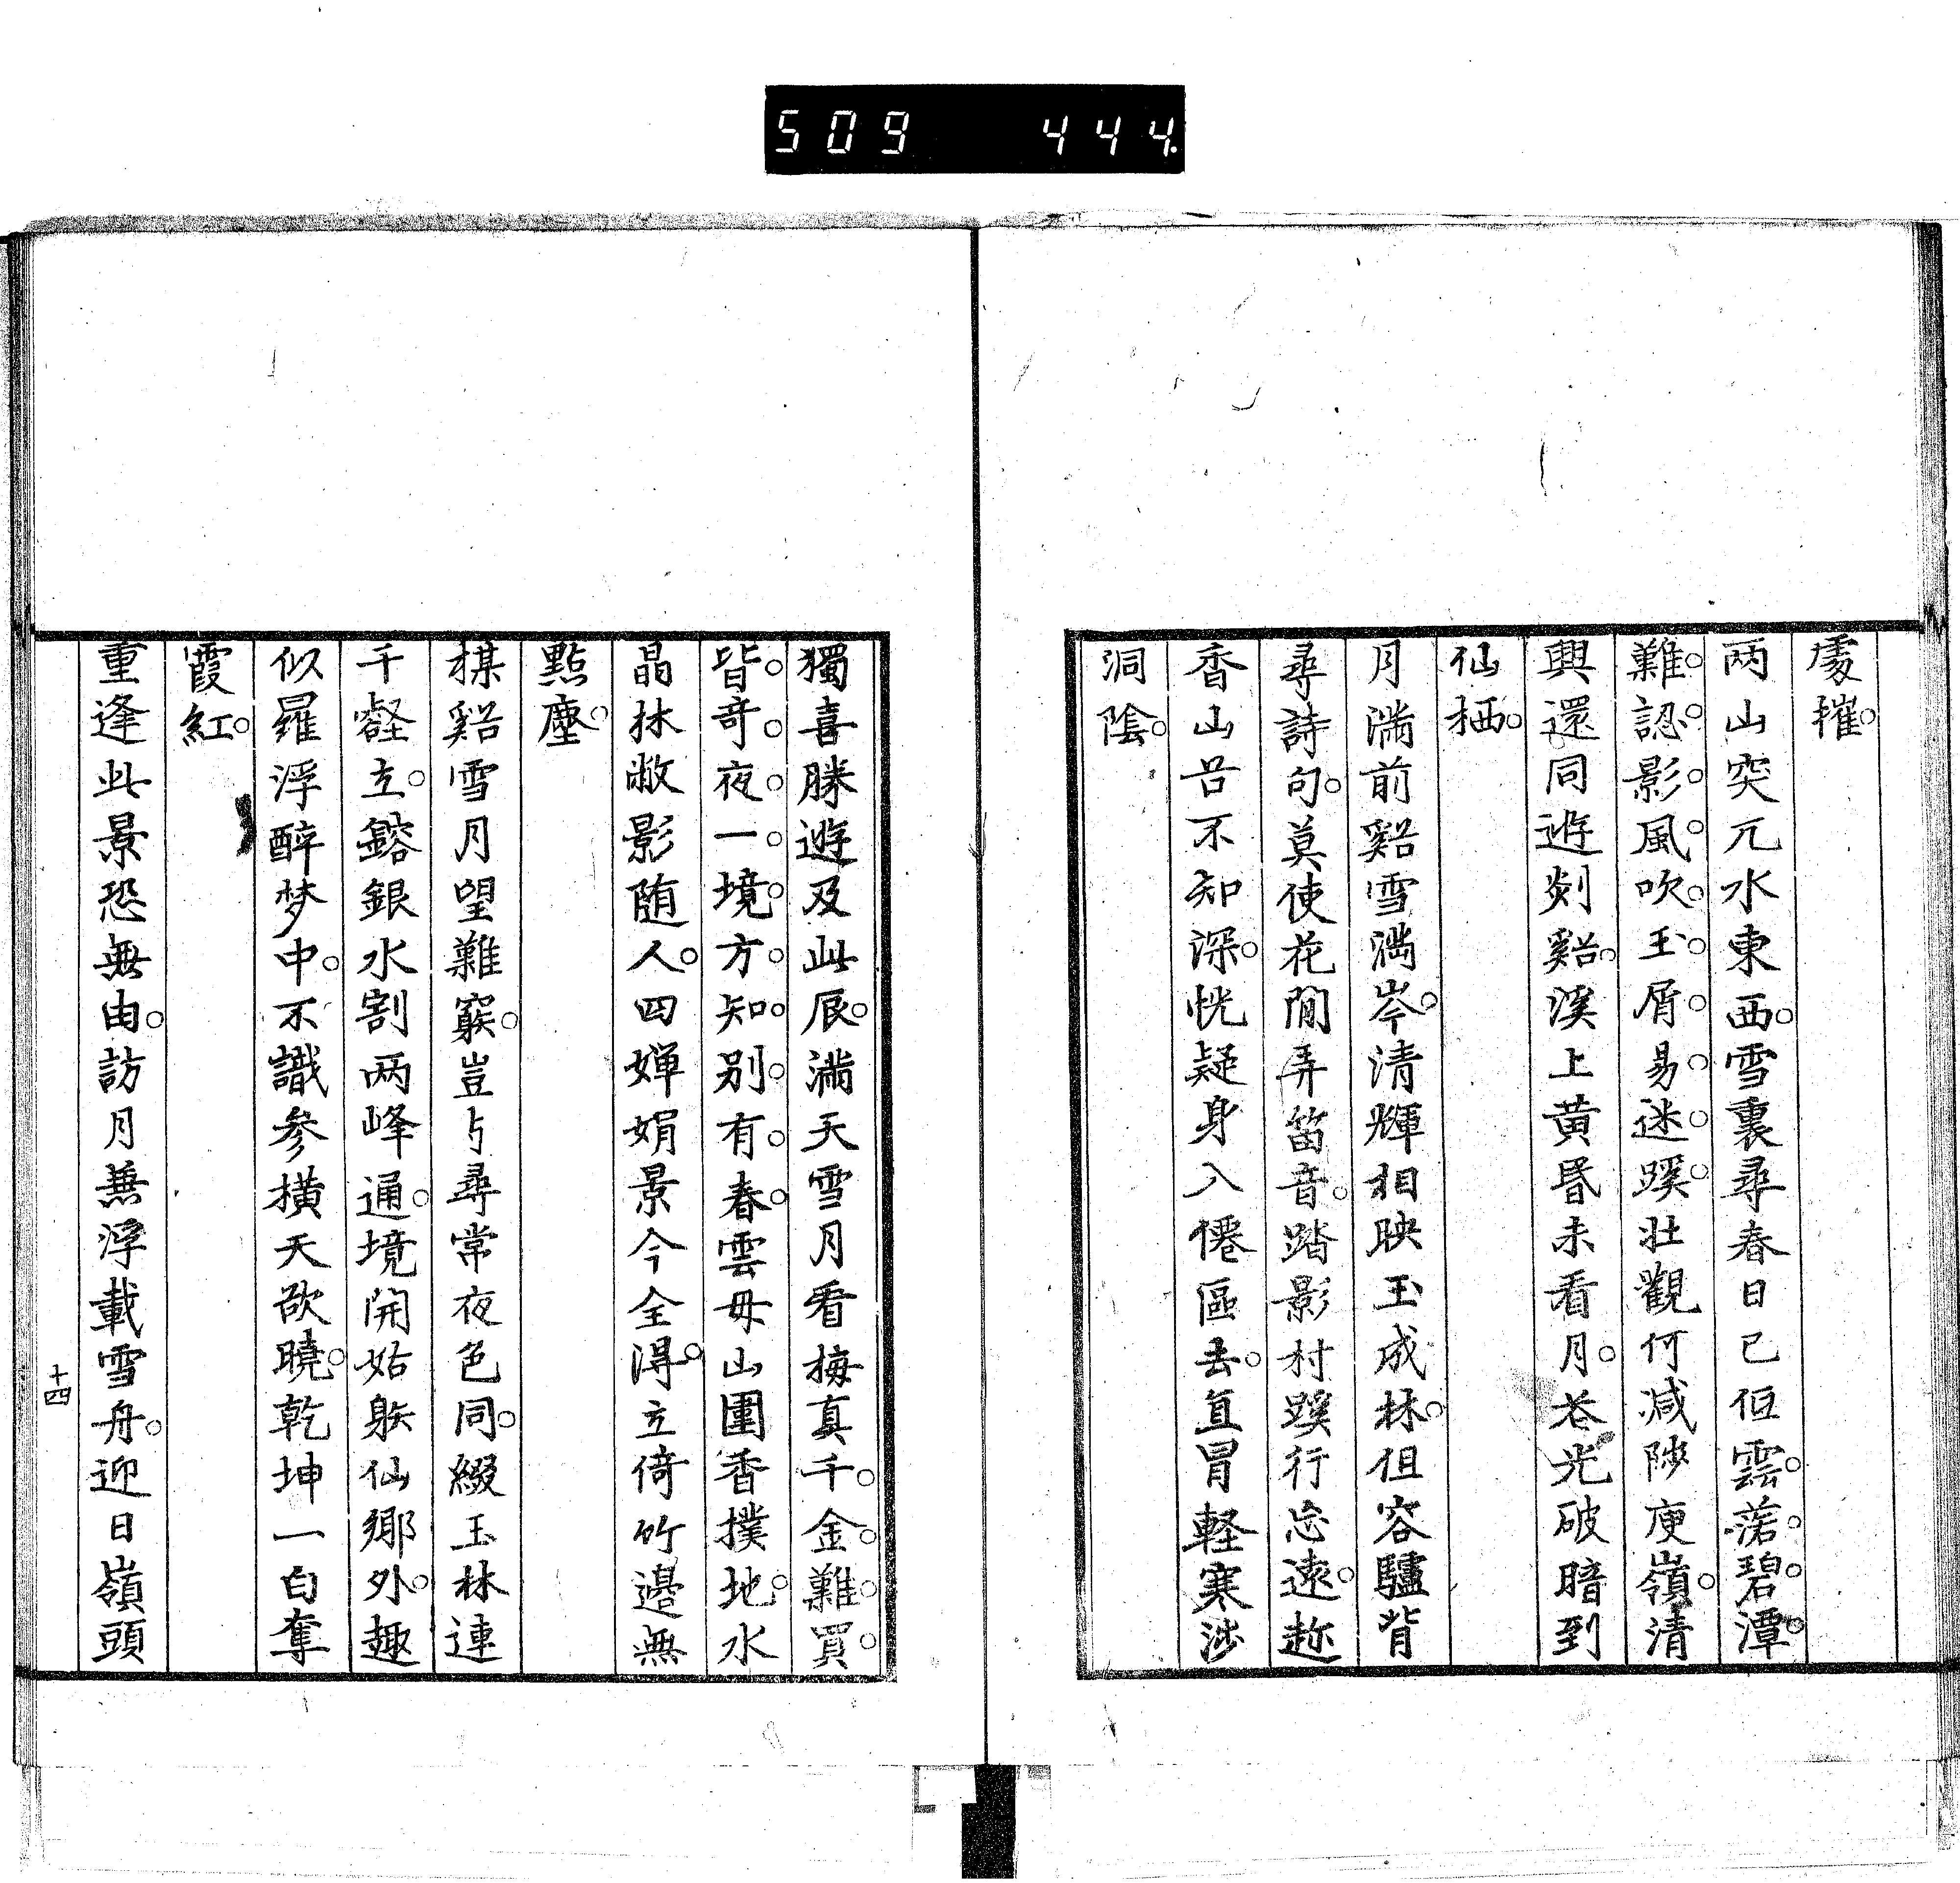 509 444
處摧。
两山突兀水東西。雪裏尋春日已低。雲蒞碧潭。
難認影。風吹玉屑易迷蹊。壯觀何減陟庾嶺。清
興還同遊剡谿。溪上黄昏未看月。谷光破暗到
仙栖。
月満前谿雪満岑。清輝相映玉成林。但容驢背
尋詩句。莫使花間弄笛音。踏影村蹊行忘遠。趂
香山谷不知深。恍疑身入僊區去。直冒軽寒渉
洞陰。
獨喜勝遊及此辰。満天雪月看梅真。千金難買
皆奇夜。一境方知别有春。雲母山圍香撲地。水
晶林敝影随人。四嬋娟景今全得。立倚竹邉無
點塵。
楳谿雪月望難窮。豈与尋常夜色同。綴玉林連
千壑立。鎔銀水割两峰通。境開姑躲仙郷外。趣
似羅浮醉梦中。不識参横天欲曉。乾坤一白奪
霞紅。
重逢此景恐無由。訪月兼浮載雪舟。迎日嶺頭
十四